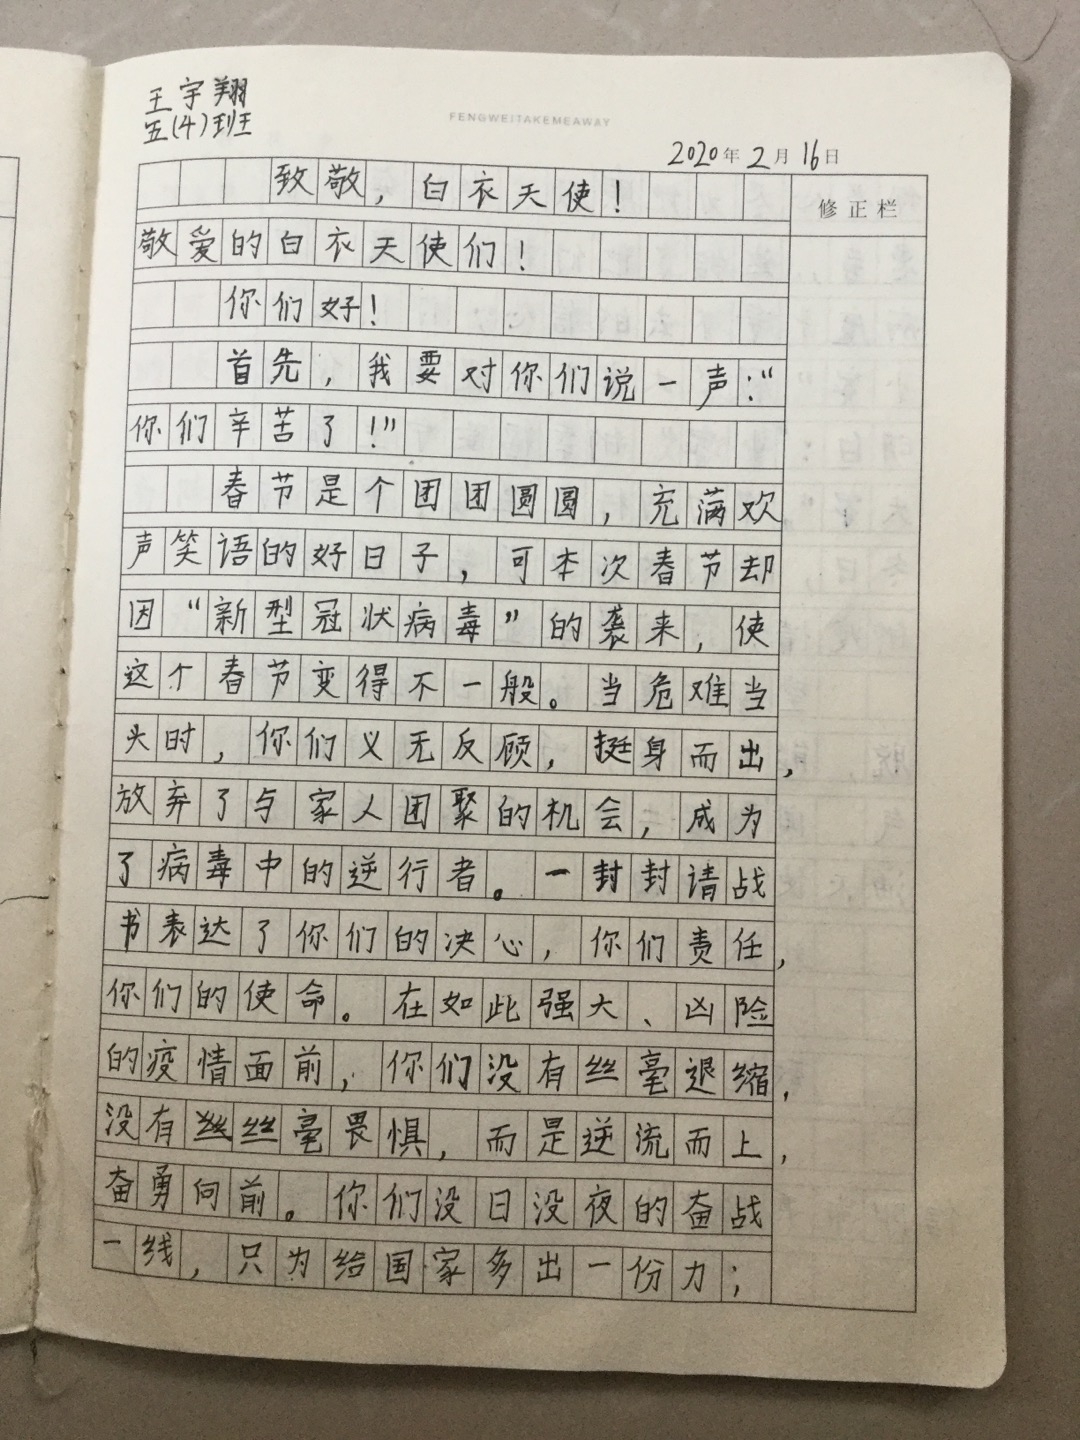 王宇翔
五(4)班
FENGWEITAKEMEAWAY
2020年2月16日
致敬，白衣天使！
修正栏
敬爱的白衣天使们！
你们好！
首先，我要对你们说一声：“
你们辛苦了！”
春节是个团团圆圆，充满欢
声笑语的好日子，可本次春节却
因“新型冠状病毒”的袭来，使
这个春节变得不一般。当危难当
头时，你们义无反顾，挺身而出，
放弃了与家人团聚的机会，成为
了病毒中的逆行者。一封封请战
书表达了你们的决心，你们责任，
你们的使命。在如此强大、凶险
的疫情面前，你们没有丝毫退缩，
没有丝丝毫畏惧，而是逆流而上，
奋勇向前。你们没日没夜的奋战
一线，只为给国家多出一份力；